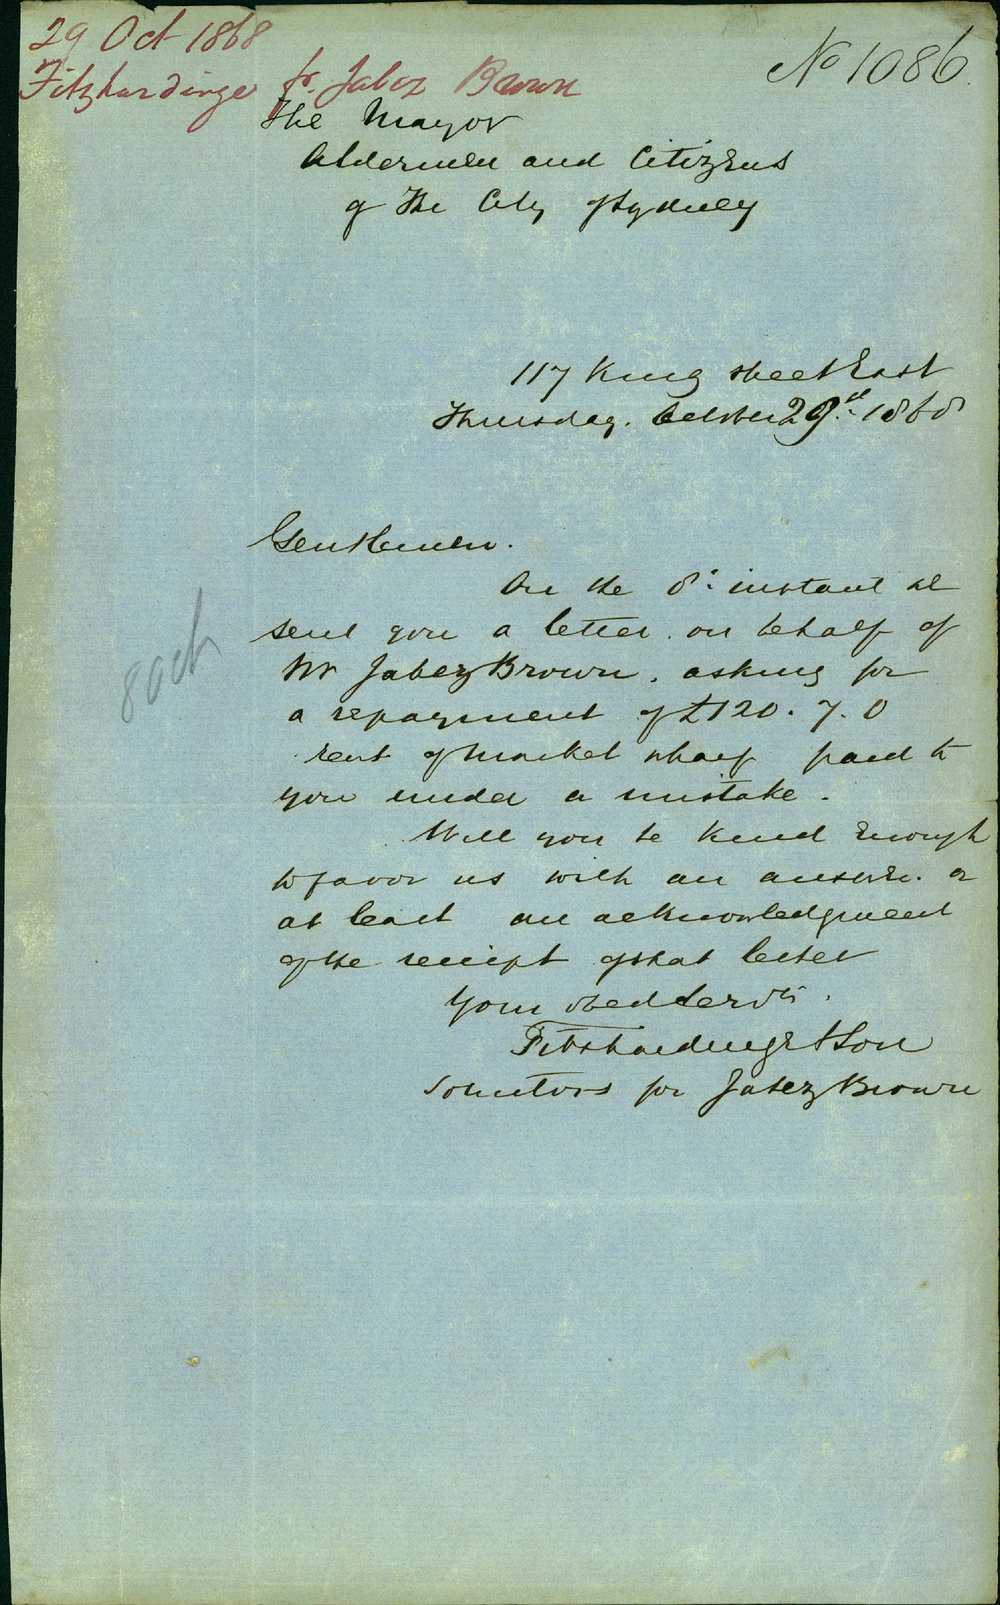 29 Oct 1868
Fitzhardinge fr. Jabez Brown
No 1086
The Mayor
Aldermen and Citizens
of the City of Sydney
117 King street East
Thursday. October 29th 1868
Gentlemen.
On the 8th instant we
sent you a letter on behalf of
Mr Jabez Brown. asking for
a repayment of £120.7.0
rent of Market wharf paid to
you under a mistake.
Will you be kind enough
to favor us with an answer or
at least an acknowledgment
of the receipt of that letter
Your obed Servts.
Fitzhardinge & Son
Solicitors for Jabez Brown
8 Oct